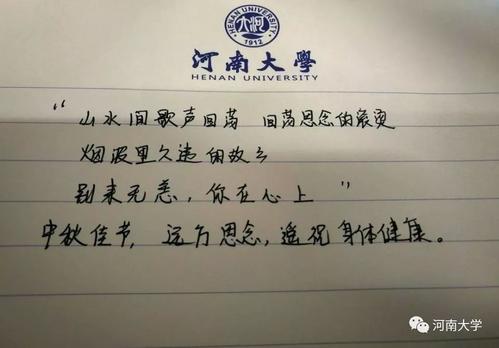 HENAN UNIVERSITY
1912
河南大學
HENAN UNIVERSITY
“山水间歌声回荡 回荡思念的滚烫
烟波里久违的故乡
别来无恙，你在心上”
中秋佳节，远方思念，遥祝身体健康。
河南大学